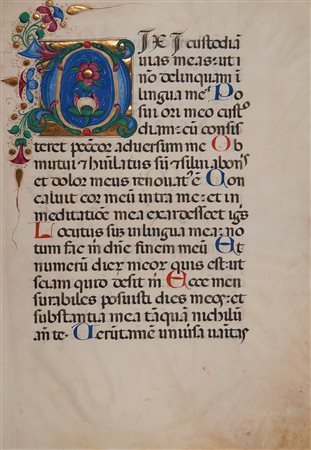 DIXI custodiā
vias meas: ut i
nō delinquam ī
lingua meᵃ Po
sui ori meo custo
diam: cū consis
teret peccōr adversum me Ob
mutui ⁊ hūīlatus sū ⁊ silui abonıs
et dolor meus renouatꝰ ē Con
caluit cor meū intra me: et in
meditatiōe mea exardescet igīs
Locutus sūz in lingua mea: no
tum fac m̄ dn̄e finem meū Et
numerū dierȝ meorȝ quis est: ut
sciam quid desit m̄ Ecce men
surabiles posuisti dies meos: et
substantia mea tāquā nichilū
an̄ te· Uerūtamē uniuīsa uaītas